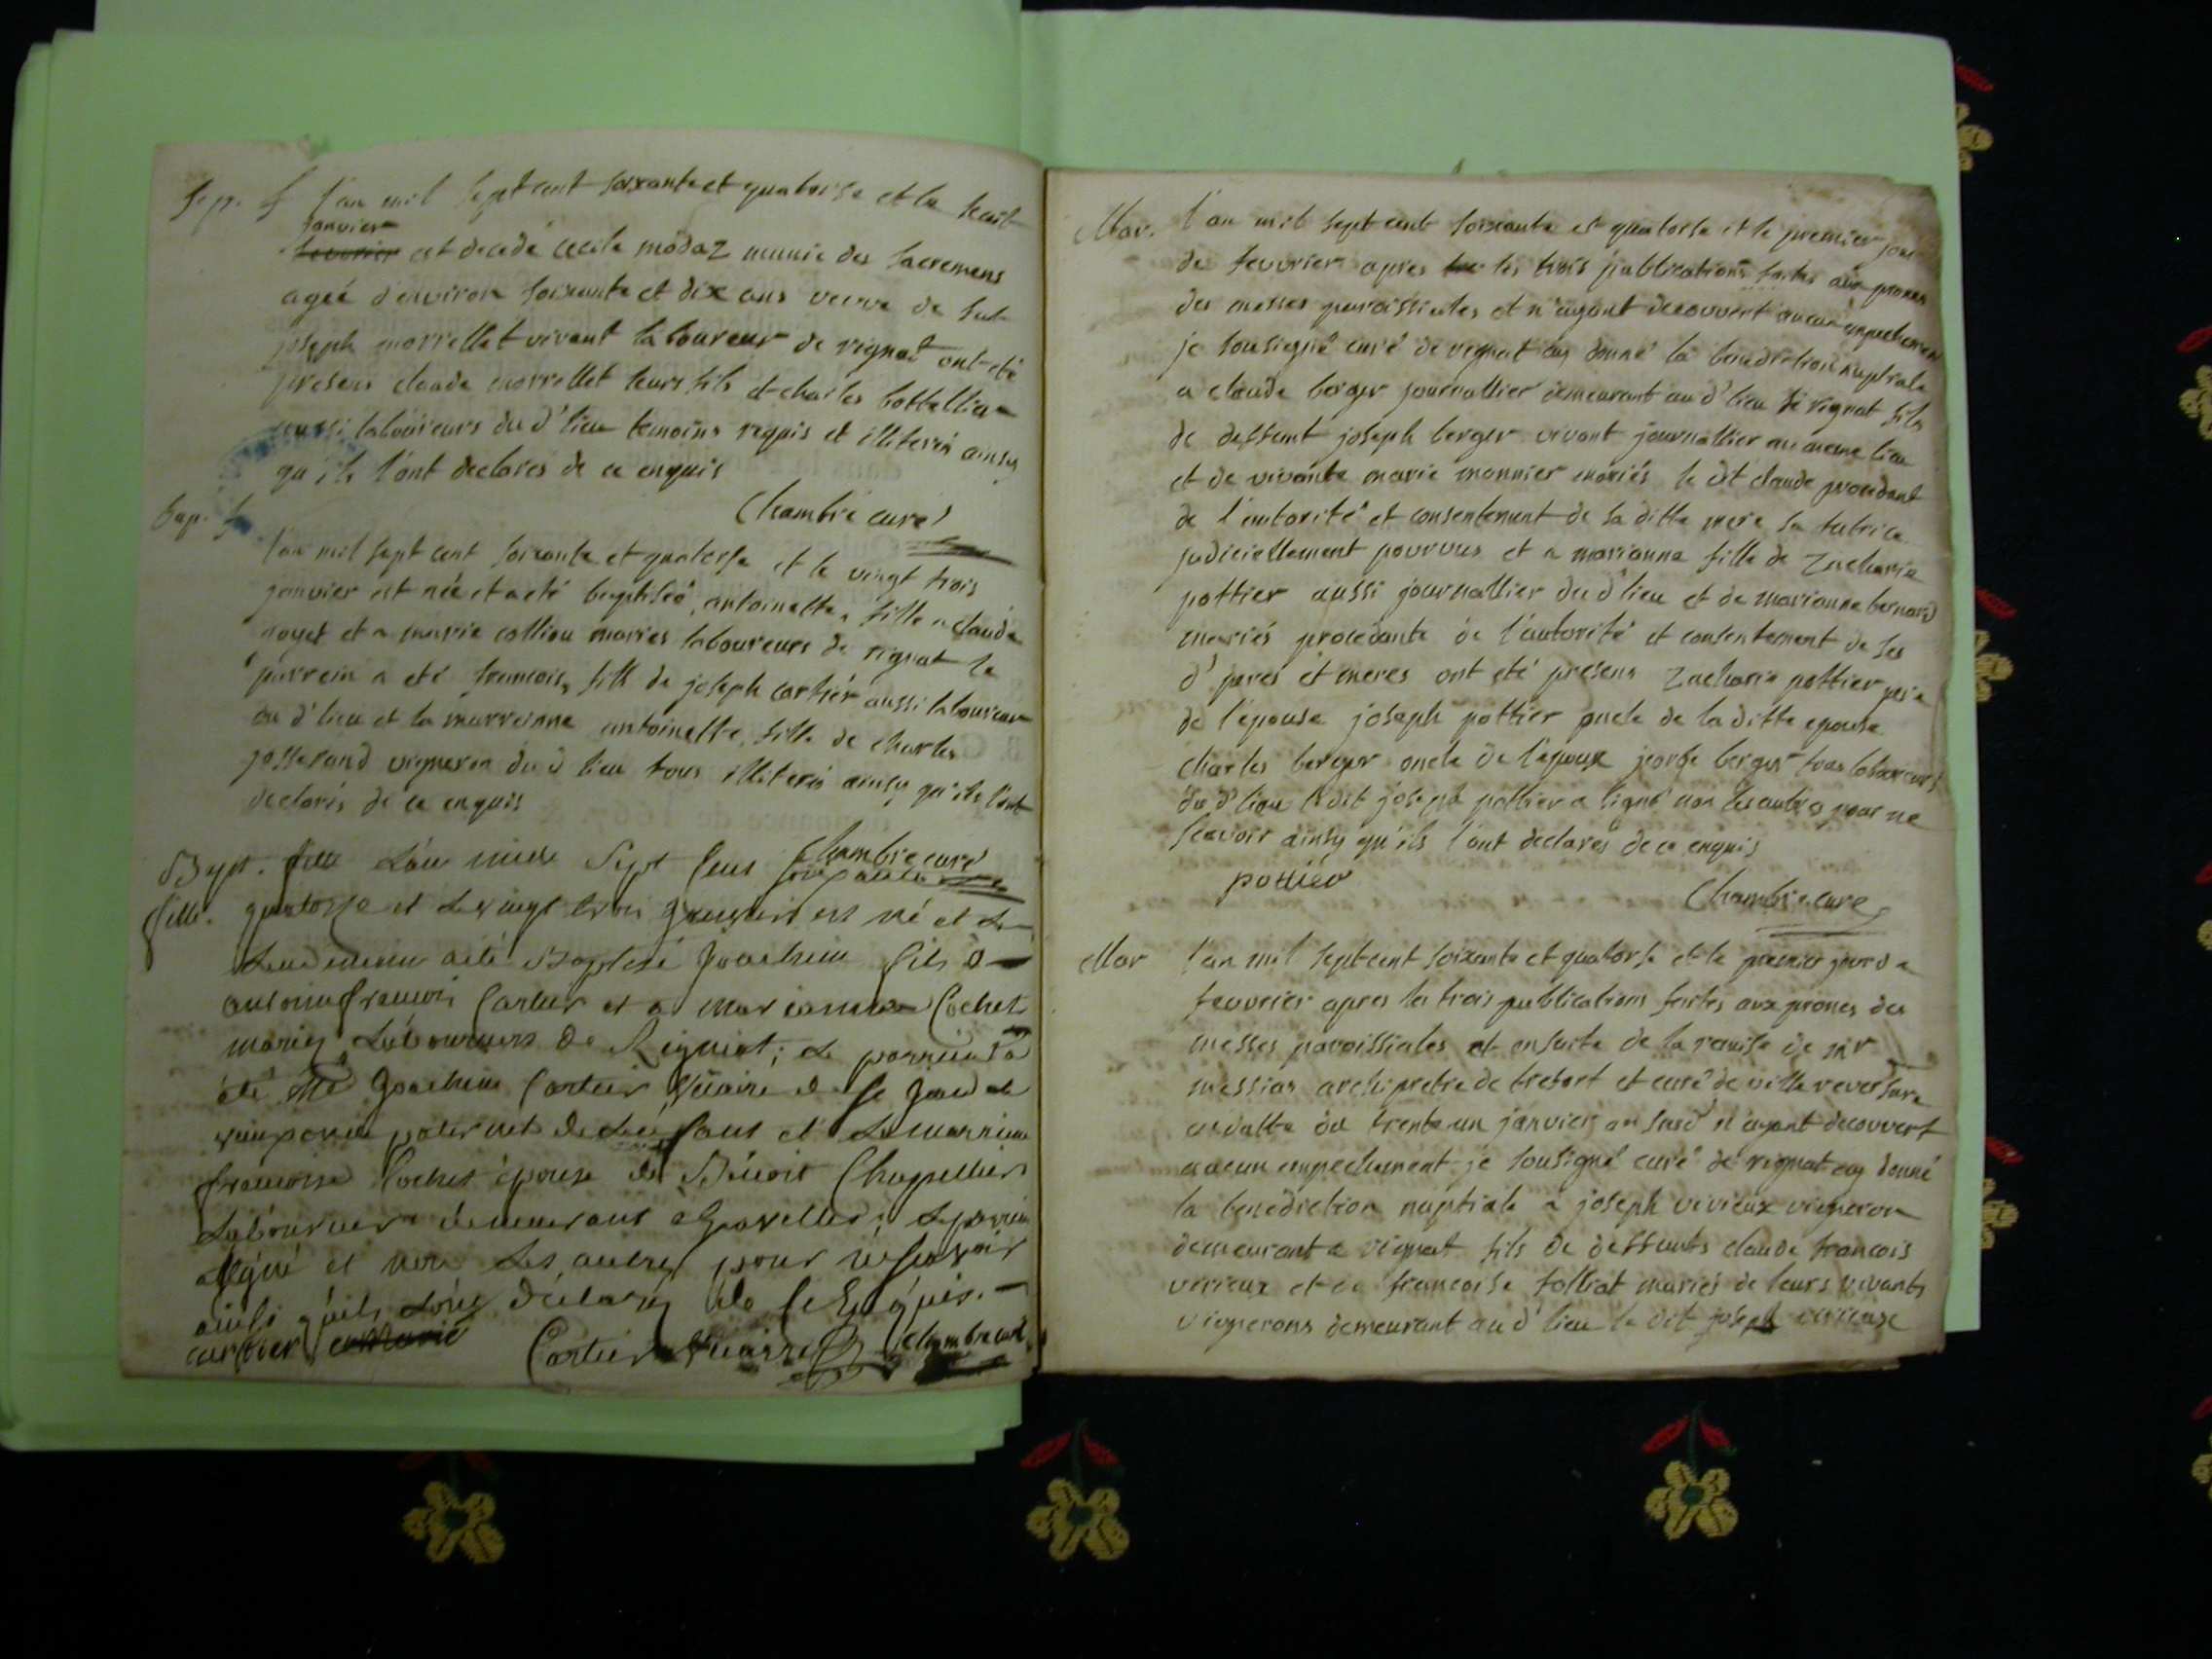 Sep. f l'an mil sept cent soixante et quatorse et le huit
janvier
fevrier est decedé cecile modaz munie des sacremens
ageé d'environ soixante et dix ans veuve de fut
joseph morrellet vivant laboureur de rignat ont été
presens claude morrellet leurs fils et charles bottellier
aussi laboureurs du d' lieu temoins requis et illiterés ainsy
qu'ils l'ont declarés de ce enquis
Chambre curé
Bap. f.
l'an mil sept cent soixante et quatorse et le vingt trois
janvier est née et a eté baptiseé antoinette fille a claude
noyet et a marie colliou mariés laboureurs de rignat le
parrein a eté francois, fils de joseph cartier aussi laboureur
du d' lieu et la marreinne antoinette, fille de charles
josserand vigneron du d lieu tous illiterés ainsy qu'ils l'ont
declarés de ce enquis
Chambre curé
Bapt. fille L'an mille Sept Cens soixante
fille. quatorze et le vingt trois Janvier est né et le
Lendemain a été Baptisé Joachim fils d
antoine françois Cartier et a marianne Cochet
mariez Laboureurs de Rignat; Le parrein a
été Me Joachim Cartier Vicaire de St Jean de
paternel de et La marreine
françoise Cochet épouse de Bénoit Chapellier
Laboureur demeurant a Gravelles; Le parrein
a signé et non Les autres pour ne sçavoir
ainsi qu'ils L'ont déclarez de ce Enquis.
cartier Cartier Vicaire chambre curé
Mar. l'an mil sept cent soixante et quatorse et le premier jour
de fevvrier apres les trois publications faites aux prones
des messes paroissiales et n'ayant decouvert aucun empechement
je sousigné curé de rignat ay donné la benediction nuptiale
a claude berger journallier demeurant au d' lieu de rignat fils
de deffunt joseph berger vivant journallier au meme lieu
et de vivante marie monnier mariés le dit claude procedant
de l'autorité et consentement de sa ditte mere sa tutrice
judiciellement pourvus et a marianne fille de Zacharie
pottier aussi journallier du d' lieu et de marianne bernard
mariés procedante de l'autorité et consentement de ses
d' peres et meres ont eté présens Zacharie pottier pere
de l'epouse joseph pottier oncle de la ditte epouse
charles berger oncle de l'epoux jeorge berger tous laboureurs
du d' lieu le dit joseph pottier a signé non les autres pour ne
sçavoir ainsy qu'ils l'ont declarés de ce enquis
pottier
Chambre curé
Mar l'an mil sept cent soixante et quatorse et le premier jour de
fevvrier apres les trois publications faites aux prones des
messes paroissiales et ensuite de la remise de mr
messian archipretre de tretort et curé de ville reversure
en datte du trente un janvier an susd n'ayant decouvert
aucun empechement je sousigné curé de rignat ay donné
la benediction nuptiale a joseph verieux vigneron
demeurant a rignat fils de deffunts claude francois
verieux et de francoise folliat mariés de leurs vivants
vignerons demeurant au d' lieu le dit joseph verieux